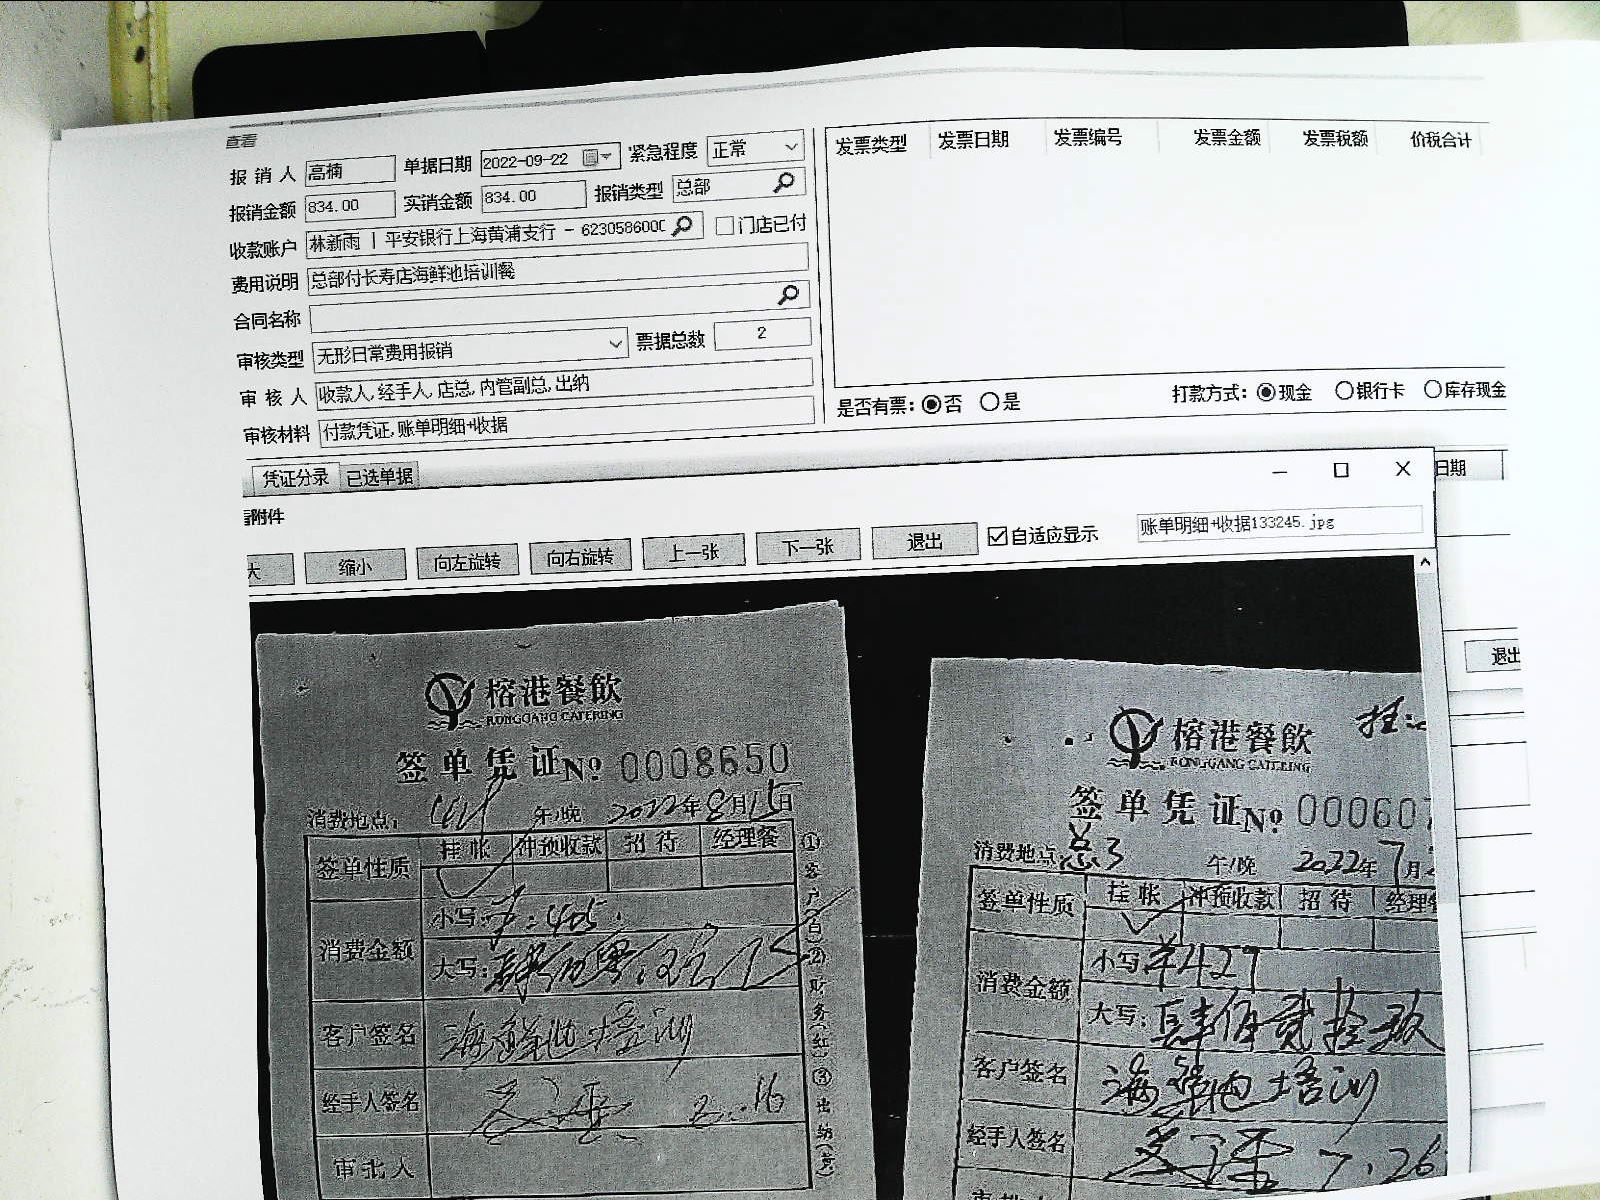 查看
报销人 高楠 单据日期 2022-09-22 紧急程度 正常
报销金额 834.00 实销金额 834.00 报销类型 总部
收款账户 林新雨 | 平安银行上海黄浦支行 - 623058600 门店已付
费用说明 总部付长寿店海鲜池培训餐
合同名称
审核类型 无形日常费用报销 票据总数 2
审核人 收款人,经手人,店总,内管副总,出纳
审核材料 付款凭证,账单明细+收据
发票类型 发票日期 发票编号 发票金额 发票税额 价税合计
是否有票: 否 是 打款方式: 现金 银行卡 库存现金
凭证分录 已选单据
日期
附件
大 缩小 向左旋转 向右旋转 上一张 下一张 退出 自适应显示 账单明细+收据133245.jpg
退出
榕港餐飲
RONGGANG CATERING
签单凭证 No 0008650
消费地点: 午/晚 2022年8月15日
签单性质 挂帐 冲预收款 招待 经理餐
消费金额 小写: 405
大写:
客户签名 海鲜池培训
经手人签名
审批人
①客户(白)②财务(红)③出纳(黄)
挂
榕港餐飲
RONGGANG CATERING
签单凭证 No 000607
消费地点 总3 午/晚 2022年7月
签单性质 挂帐 冲预收款 招待 经理餐
消费金额 小写 429
大写: 肆佰贰拾玖
客户签名 海鲜池培训
经手人签名 7.26
审批人